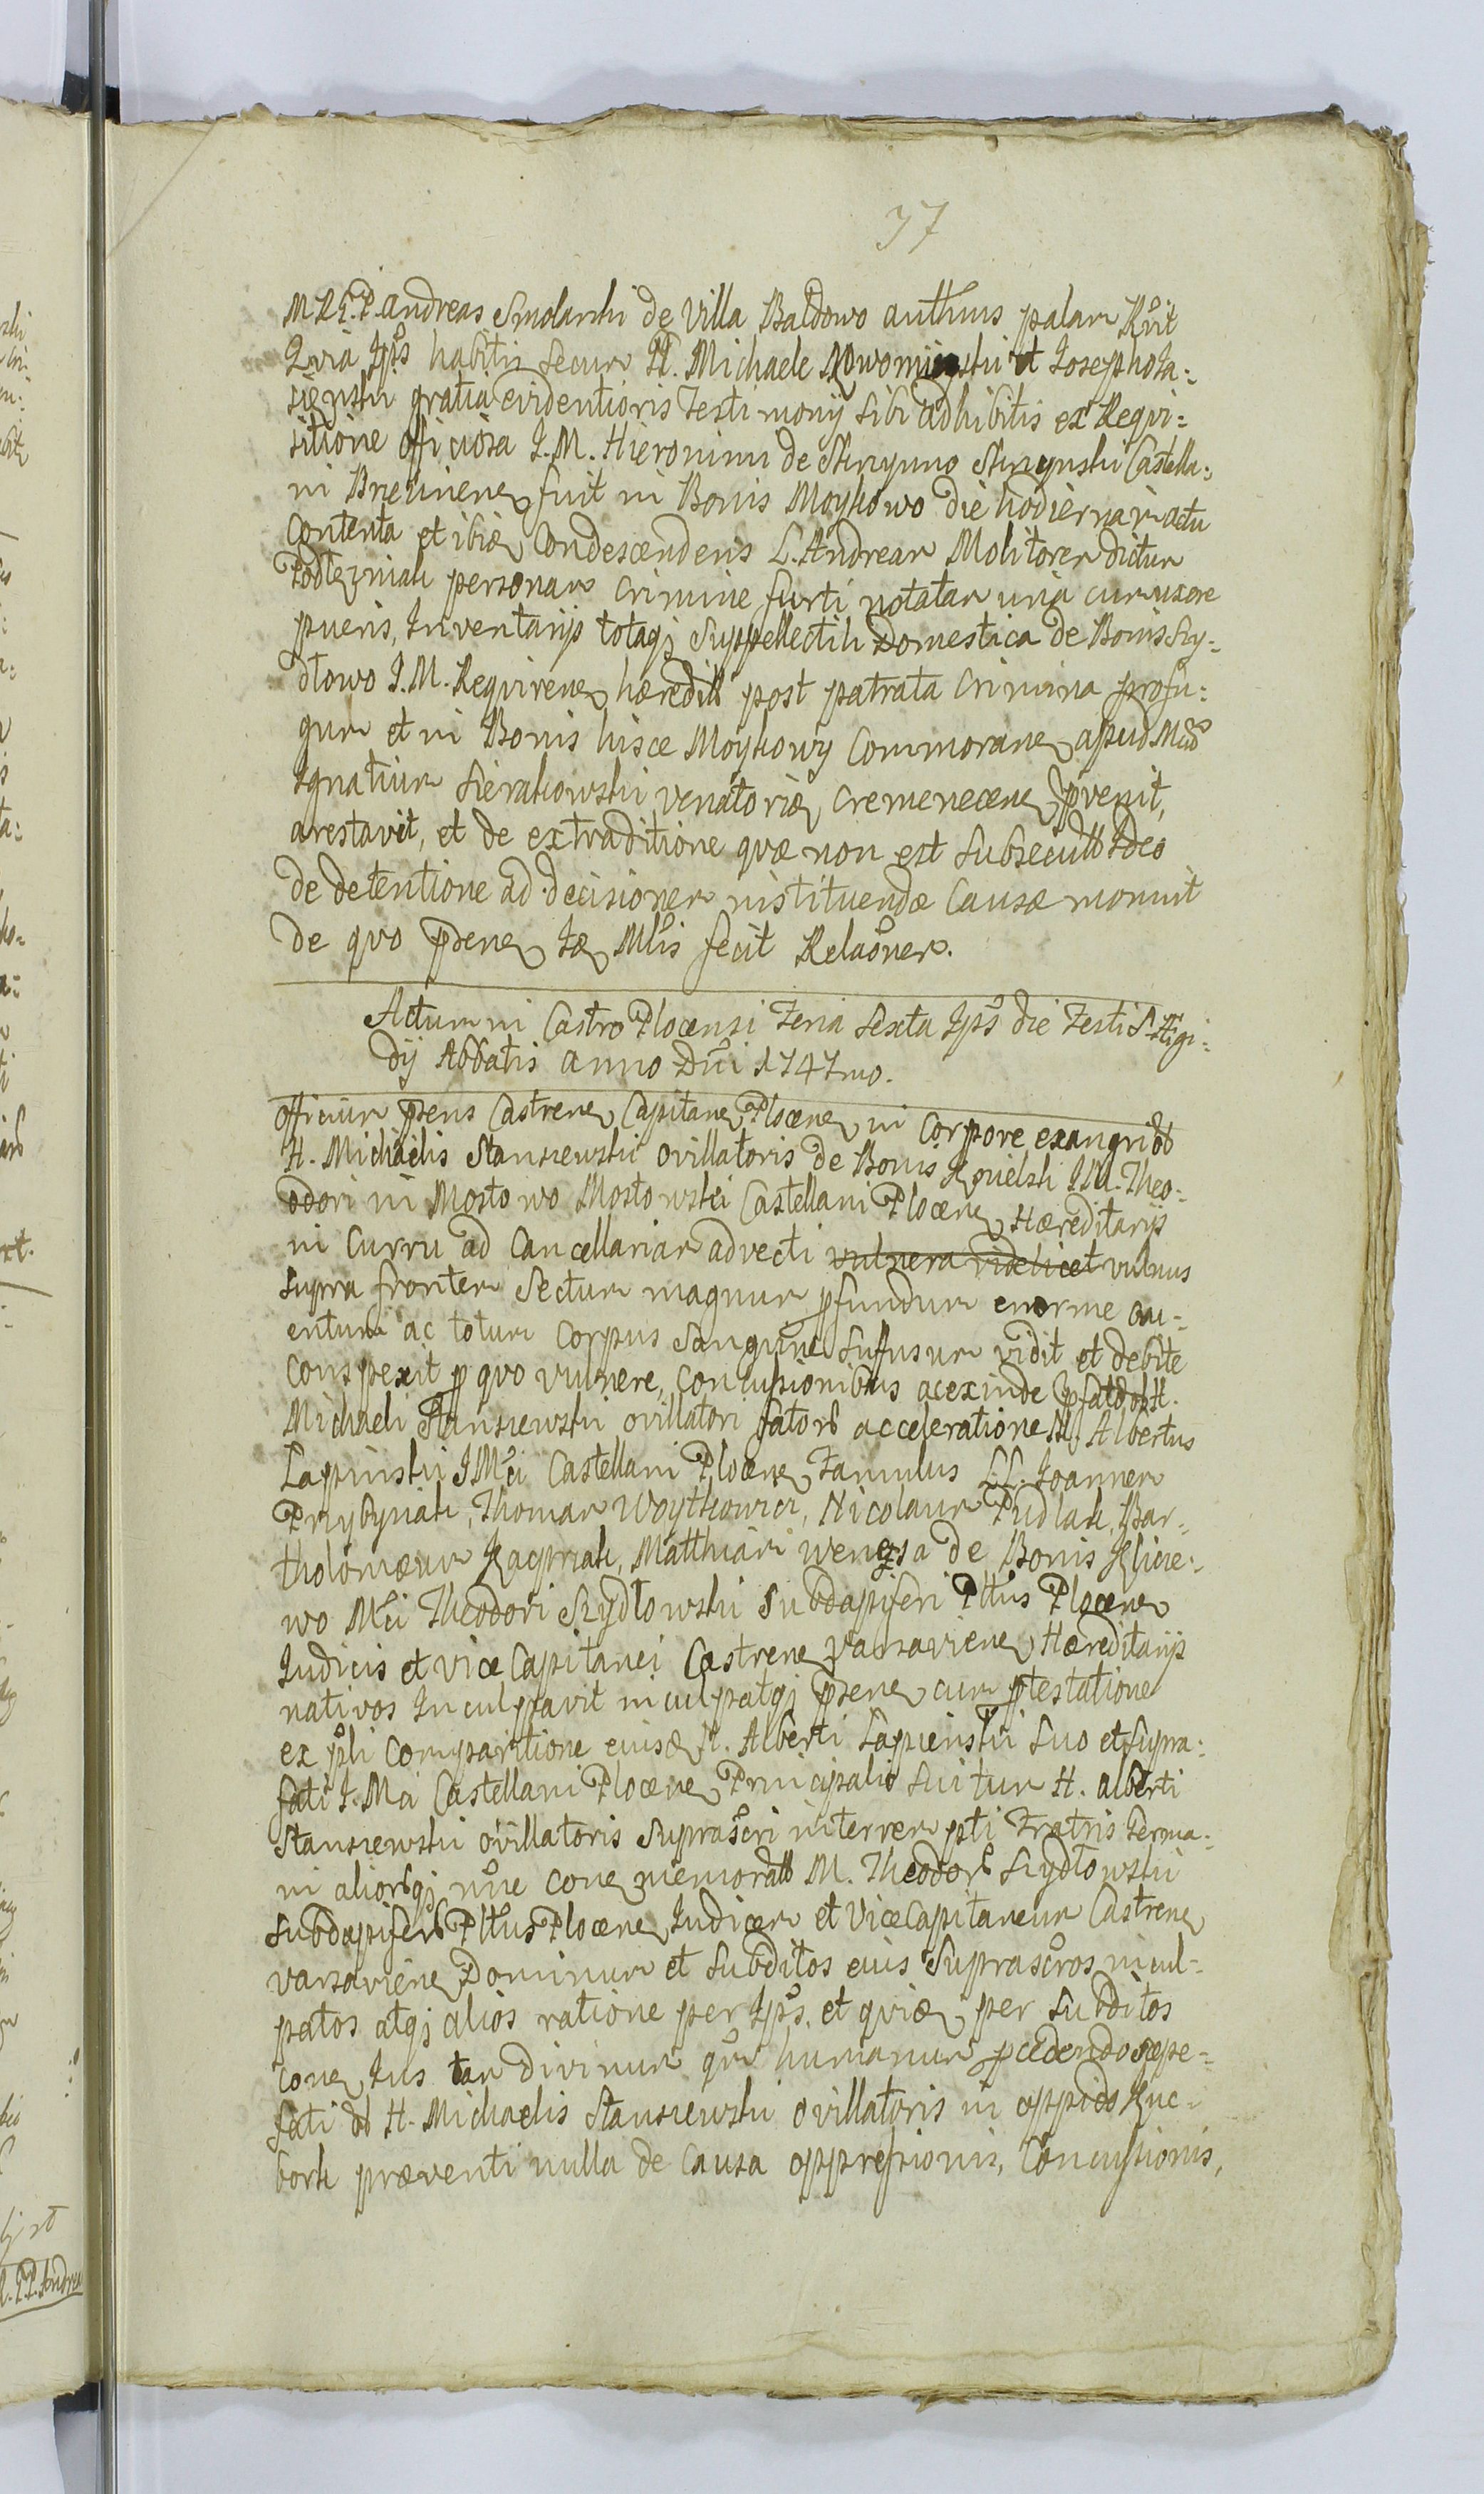 37
M R G.P. Andreas Smolarski de Villa Baldowo authus palam Rcit
Quia Ips habitis secum H. Michaele Nowomieyski et Josepho Ja-
sieński gratia evidentioris Testimonij sibi adhibitis ex Requi-
sitione officiosa I.M. Hieronimi de Skrzynno Skrzynski Castella-
ni Brezinen fuit in Bonis Moykowo die hodierna in actu
contenta et ibiq condescendens L. Andream Molitorem dictum
Podlezniak personam crimine furti notatam una cum uxore
pueris, Inventarijs totaqj Suppellectili Domestica de Bonis Szy-
dłowo I.M. Requirenę hæredits post patrata crimina profu-
gum et in Bonis hisce Moykowy commorane apud Mcd
Ignatium Sierakowski venatorię Cremenecenę pvenit,
arestavit, et de extraditione quæ non est subsecuta Ideo
de detentione ad decisionem instituendæ Causæ monuit
de quo pdene Ię Mlis fecit Relaonem.
Actum in Castro Plocensi Feria Sexta Ips die Festi S. Ægi-
dij Abbatis Anno Dni 1747mo.
Officium pdens Castrenę Capitanę Plocenę in corpore exangui ddb
H. Michaelis Stansiewski ovillatoris de Bonis I.M. Theo-
odori in Mostowo Mostowski Castellani Plocenę Hæreditarijs
in Curru ad Cancellariam advecti vulnera videlicet vulnus
supra frontem sectum magnum pfundum enorme cru-
entum ac totum corpus sanguine suffusum vidit et debite
conspexit p quo vulnere, concussionibus ac exinde pfato ddb H.
Michaeli Stansiewski ovillatori fatorb acceleratione H. Albertus
Lapinski I Mci Castellani Plocenę Famulus LL. Joannem
Przybyniak, Thomam Woytkowicz, Nicolaum Pudlak, Bar-
tholomæum Kacprzak, Matthiam Wengza de Bonis Klice-
wo Mci Theodori Szydłowski Subdapiferi Pttus Plocenę
Judicis et Vice Capitanei Castrenę Varsavienę Hæreditarijs
nativos Inculpavit inculpatqj pdenę cum ptestatione
ex psli comparitione eiusd H. Alberti Lapienski suo et supra-
fati I. Mci Castellani Plocenę Principalis sui tum H. Alberti
Stansiewski ovillatoris suprascri interrempti Fratris Germa-
ni aliorbqj nne conę memoratb M. Theodorb Szydłowski
Subdapiferb Pttus Plocenę Judicem et ViceCapitaneum Castrenę
Varsavienę Dominum et subditos eius suprascros incul-
patos atqj alios ratione per Ips. et quię per subditos
conę Jus tam divinum qm humanum pcedendo sæpe-
fati ddb H. Michaelis Stansiewski ovillatoris in oppido Kuc-
bork præventi nulla de causa oppressionis, concussionis,